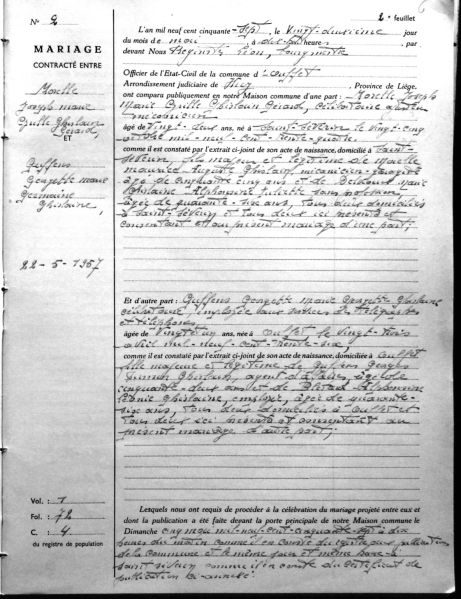 2e feuillet
N° 2
MARIAGE
CONTRACTÉ ENTRE
Morelle
Joseph Marie
Ghislain
Gérard,
ET
Guffens
Georgette Marie
Germaine
Ghislaine,
22-5-1957
Vol. : 1
Fol. : 72
C. : 4
du registre de population
L'an mil neuf cent cinquante-sept, le vingt-deuxième jour
du mois de mai, à dix heures, par
devant Nous Léon, bourgmestre
Officier de l'Etat-Civil de la commune d'Ouffet
Arrondissement judiciaire de Huy, Province de Liège,
ont comparu publiquement en notre Maison commune d'une part : Morelle Joseph
Marie Ghislain Gérard, célibataire,
mécanicien
âgé de vingt-deux ans, né à Saint-Séverin le vingt-cinq
mil neuf cent trente-quatre
comme il est constaté par l'extrait ci-joint de son acte de naissance, domicilié à Saint-
Séverin, fils majeur et légitime de Morelle
Ghislain, mécanicien-garagiste
âgé de cinquante-cinq ans et de Marie
Ghislaine Alphonsine Juliette, sans profession
âgée de quarante-six ans, tous deux domiciliés
à Saint-Séverin et tous deux ici présents et
consentant au présent mariage d'une part;
Et d'autre part : Guffens Georgette Marie Ghislaine
célibataire, employée aux services des télégraphes
et téléphones
âgée de vingt et un ans, née à Ouffet le vingt-trois
avril mil-neuf-cent-trente-six,
comme il est constaté par l'extrait ci-joint de son acte de naissance, domiciliée à Ouffet
fille majeure et légitime de Guffens Georges
Ghislain, agent d'affaires, âgé de
cinquante-deux ans et de
Ghislaine, âgée de quarante-
six ans, tous deux domiciliés à Ouffet et
tous deux ici présents et consentant au
présent mariage d'autre part;
Lesquels nous ont requis de procéder à la célébration du mariage projeté entre eux et
dont la publication a été faite devant la porte principale de notre Maison commune le
Dimanche cinq mai mil-neuf-cent-cinquante-sept à dix
heures du matin comme il en conste du registre aux publications
de la commune et le même jour et même heure à
Saint-Séverin comme il en conste du certificat de
publication ci-annexé.